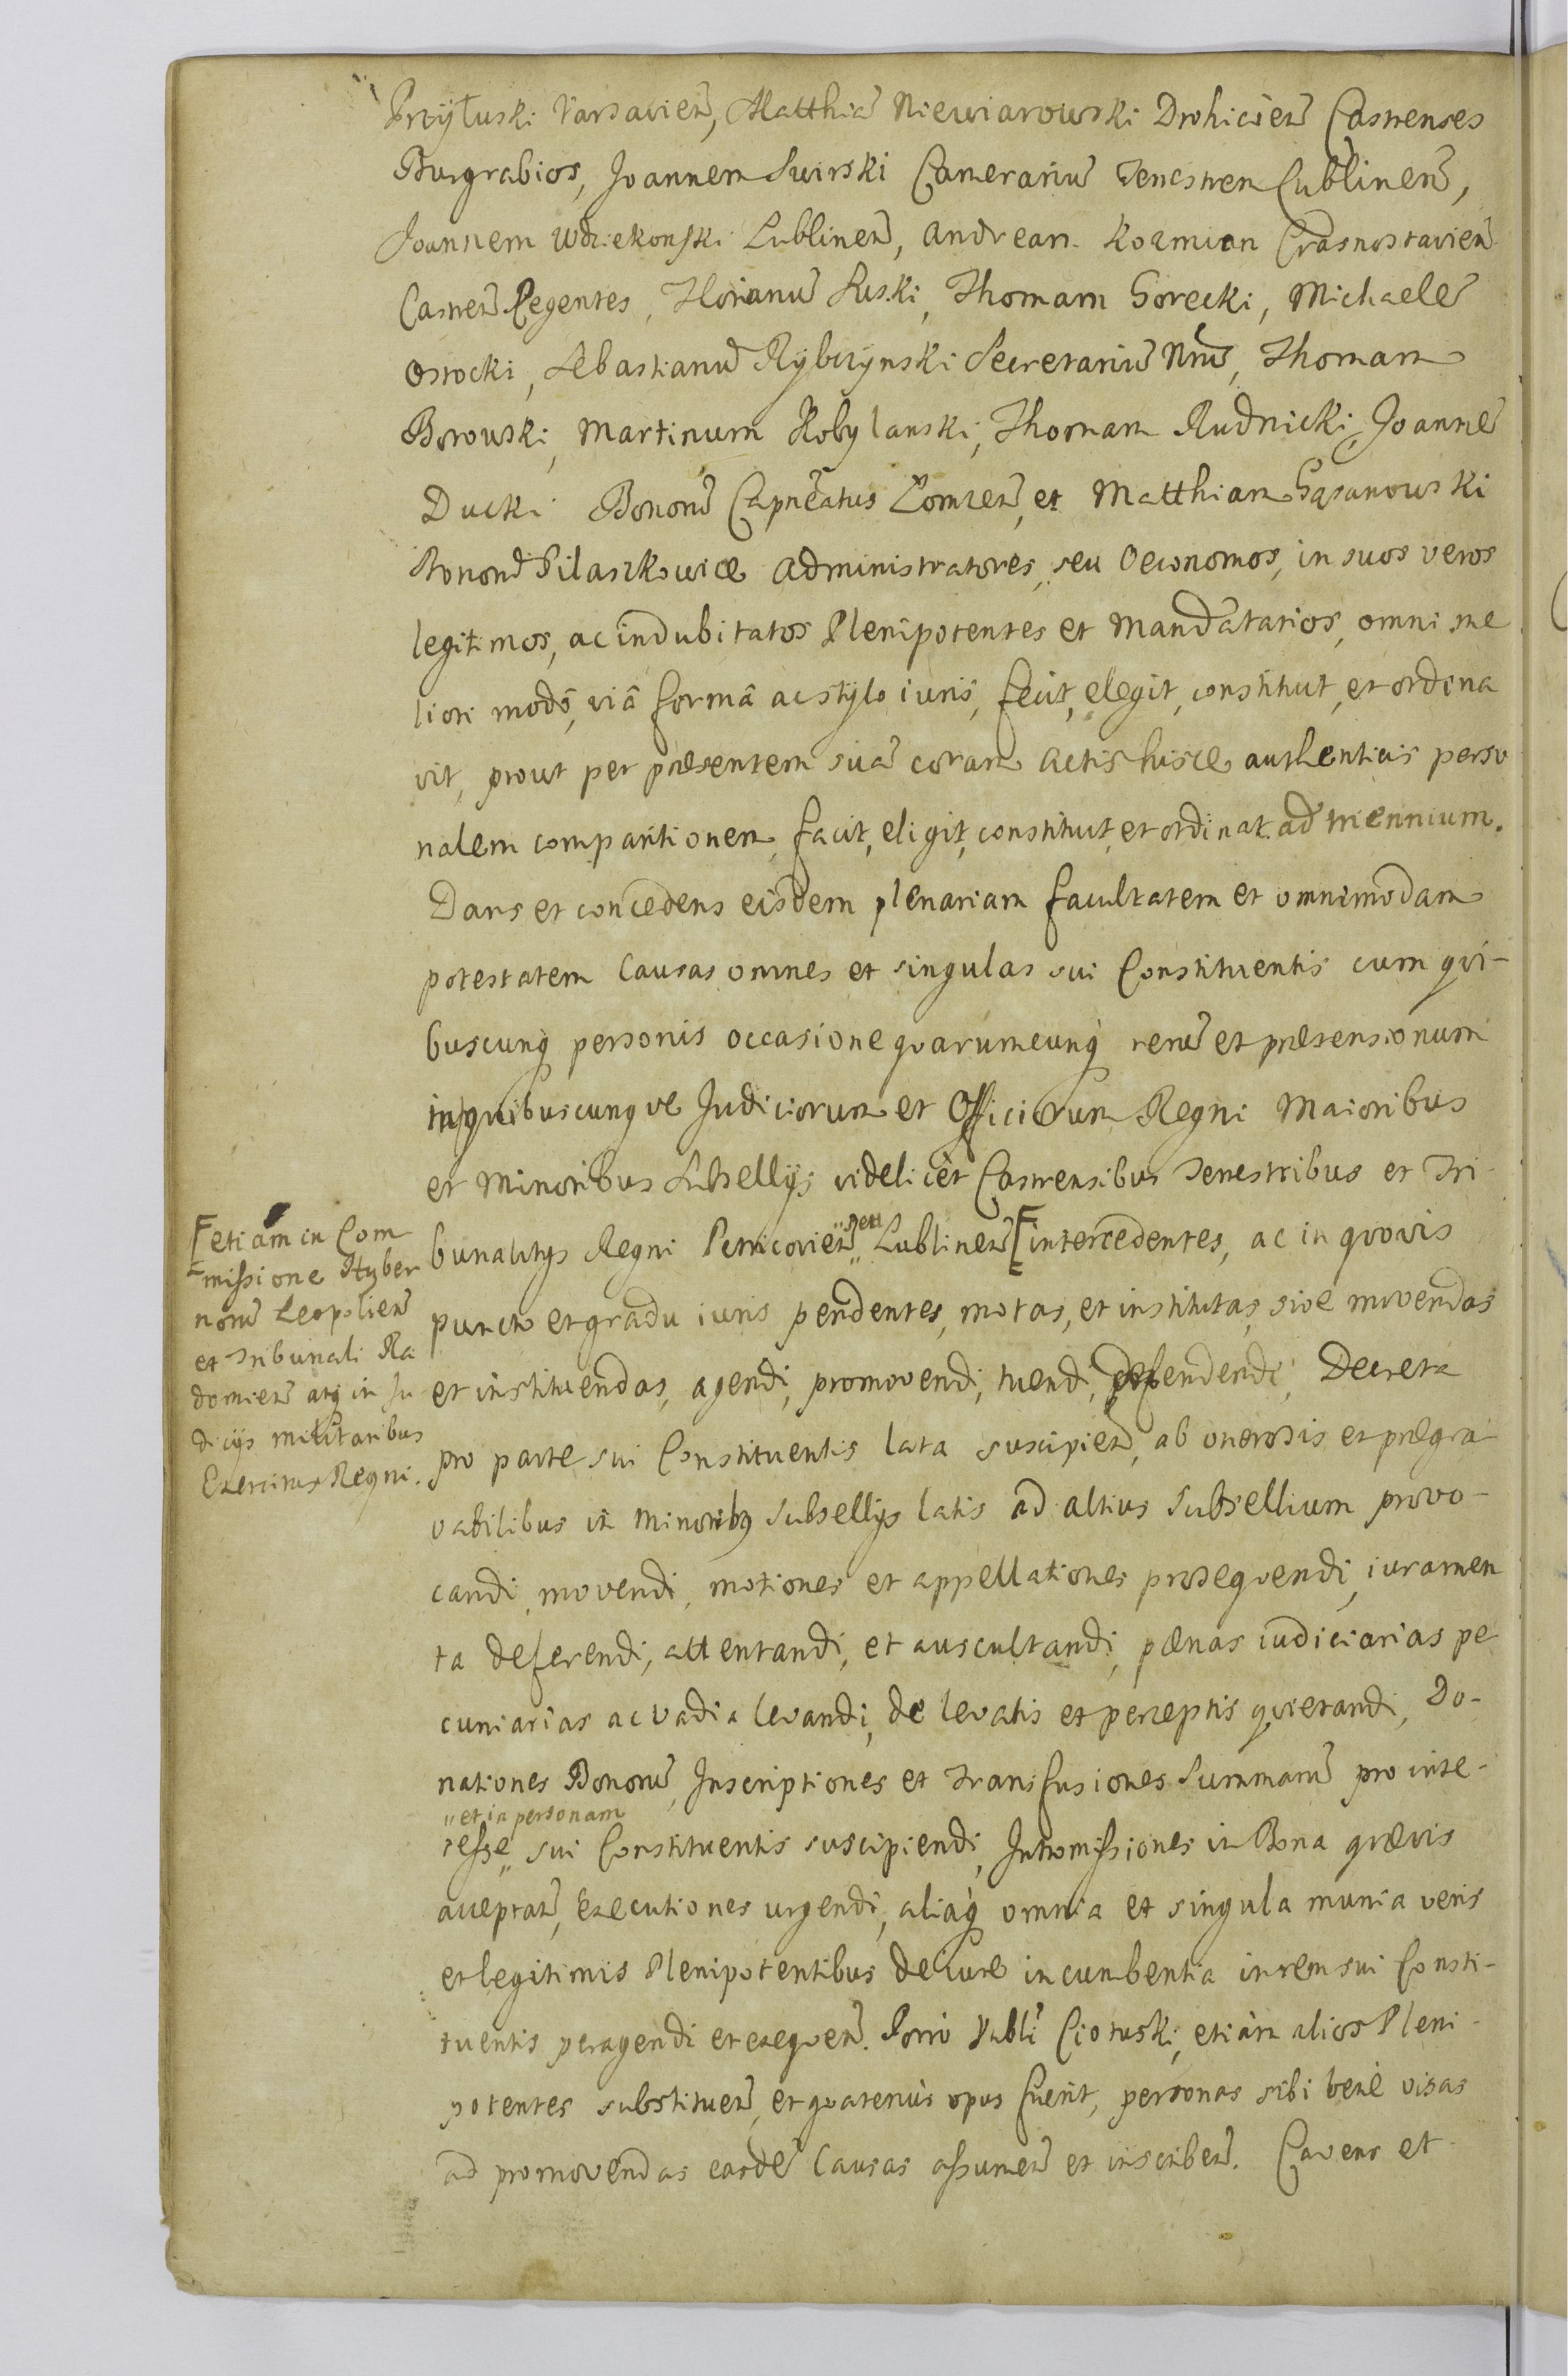 Przyłuski Varsavień, Matthiã Niewiarowski Drohicień Castrenses
Burgrabios, Joannem Swirski Camerariũ Terrestrem Lublineñ,
Joannem Wdziekonski Lublineñ, Andream Kozmian Crasnostavieñ
Castreñ Regentes, Florianũ Suski, Thomam Gorecki, Michaelẽ
Osrocki, Sebastianũ Rybczynski Secretariũ Nrũ, Thomam
Borowski, Martinum Kobylanski, Thomam Rudnicki, Joannẽ
Ducki Bonorũ Capneatus Lomzeñ, et Matthiam Gąsanowski
Bonorũ Pilaszkowice Administratores, seu Oeconomos, in suos veros
legitimos, ac indubitatos Plenipotentes et Mandatarios, omni me
liori modô, viâ formâ ac stylo iuris, fecit, elegit, constituit, et ordina
vit, prout per præsentem suã coram Actis hisce authenticis perso
nalem comparitionem, facit, eligit, constituit, et ordinat. ad triennium.
Dans et concedens eisdem plenariam facultatem et omnimodam
potestatem Causas omnes et singulas sui Constituentis cum qui-
buscunq personis occasione quarumcunq rerũ et prætensionum
in quibuscunque Judiciorum et Officiorum Regni Maioribus
et Minoribus Subsellijs videlicèt Castrensibus Terrestribus et Tri-
bunalitijs Regni Petricovieñ " et " Lublineñ [intercedentes, ac in quovis
[etiam in Com
missione Hyber
norũ Leopolieñ
et Tribunali Ra
domieñ atq in Ju
dicijs militaribus
Exercitus Regni.
puncto et gradu iuris pendentes, motas, et institutas, sive movendas
et instituendas, agendi, promovendi, tuendi, defendendi, Decreta
pro parte sui Constituentis lata suscipieñ, ab onerosis et prægra
vabilibus in Minoribus Subsellijs latis ad altius Subsellium provo-
candi, movendi, motiones et appellationes prosequendi, iuramen
ta deferendi, attentandi, et auscultandi, pœnas iudiciarias pe
cuniarias ac vadia levandi, de levatis et perceptis quietandi, Do-
nationes Bonorũ, Inscriptiones et Transfusiones Summarũ pro inte-
" et in personam
resse " sui Constituentis suscipiendi, Intromissiones in Bona quævis
acceptañ, Executiones urgendi, aliaq omnia et singula munia veris
et legitimis Plenipotentibus de iure incumbentia in rem sui Consti-
tuentis peragendi et exequeñ. Porrò Nobli Ciotuski, etiàm alios Pleni-
potentes substitueñ, et quatenùs opus fuerit, personas sibi benè visas
ad promovendas easdẽ Causas assumeñ et inscribeñ. Cavens et